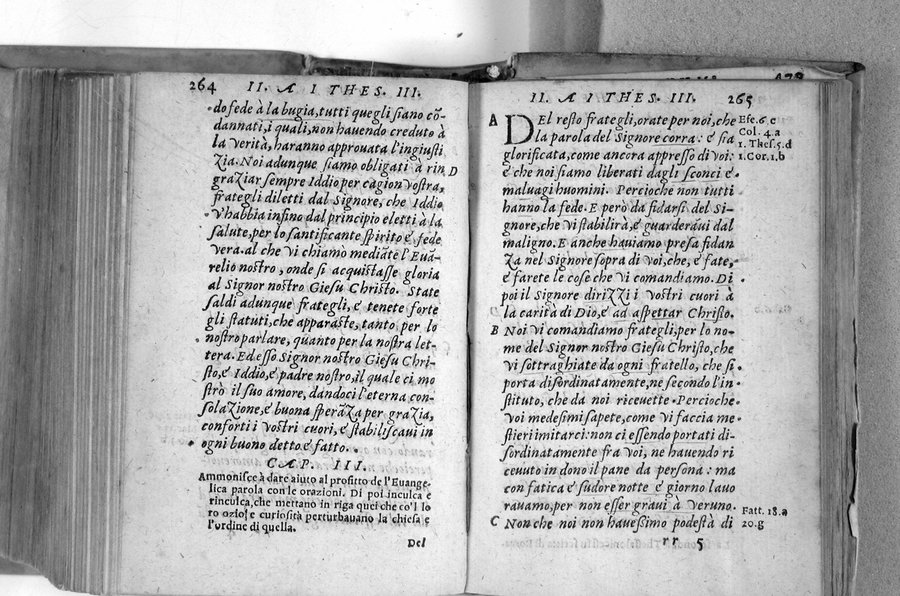 264 II. A I THES. III.
do fede à la bugia, tutti quegli siano cõ
dannati, i quali, non hauendo creduto à
la verità, haranno approuata l'ingiusti
zia. Noi adunque siamo obligati à rin
D
graziar sempre Iddio per cagion vostra,
frategli diletti dal Signore, che Iddio
v'habbia infino dal principio eletti à la
salute, per lo santificante spirito e fede
vera. al che vi chiamò mediãte l'Euã-
relio nostro, onde si acquistasse gloria
al Signor nostro Giesu Christo. State
saldi adunque frategli, e tenete forte
gli statuti, che apparaste, tanto per lo
nostro parlare, quanto per la nostra let-
tera. Ed esso Signor nostro Giesu Chri-
sto, e Iddio, e padre nostro, il quale ci mo
strò il suo amore, dandoci l'eterna con-
solazione, e buona sperãza per grazia,
conforti i vostri cuori, e stabiliscaui in
ogni buono detto e fatto.
CAP. III.
Ammonisce à dare aiuto al profitto de l'Euange-
lica parola con le orazioni. Di poi inculca e
rinculca, che mettano in riga quei che co'l lo
ro ozio e curiosità perturbauano la chiesa e
l'ordine di quella.
Del
II. A I THES. III. 265
A DEl resto frategli, orate per noi, che
la parola del Signore corra: e sia
glorificata, come ancora appresso di voi:
e che noi siamo liberati dagli sconci e
maluagi huomini. Percioche non tutti
hanno la fede. E però da fidarsi del Si-
gnore, che vi stabilirà, e guarderaui dal
maligno. E anche hauiamo presa fidan
za nel Signore sopra di voi, che, e fate,
e farete le cose che vi comandiamo. Di
poi il Signore dirizzi i vostri cuori à
la carità di Dio, e ad aspettar Christo.
B Noi vi comandiamo frategli, per lo no-
me del Signor nostro Giesu Christo, che
vi sottraghiate da ogni fratello, che si
porta disordinatamente, ne secondo l'in-
stituto, che da noi riceuette. Percioche
voi medesimi sapete, come vi faccia me-
stieri imitarci: noi ci essendo portati di-
sordinatamente fra voi, ne hauendo ri
ceuuto in dono il pane da persona: ma
con fatica e sudore notte e giorno lauo
rauamo, per non esser graui à veruno.
C Non che noi non hauessimo podestà di
rr 5
Efe. 6. c
Col. 4. a
1. Thes. 5. d
1. Cor. 1. b
Fatt. 18. a
20. g